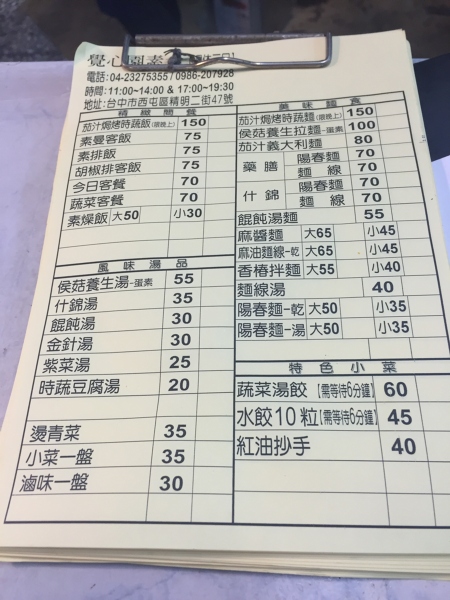 覺心園素
電話:04-23275355/0986-207928
時間:11:00~14:00 & 17:00~19:30
地址:台中市西屯區精明二街47號
精緻簡餐
茄汁焗烤時蔬飯(限晚上) 150
素曼客飯 75
素排飯 75
胡椒排客飯 75
今日客餐 70
蔬菜客餐 70
素燥飯 大50 小30
風味湯品
侯菇養生湯-蛋素 55
什錦湯 35
餛飩湯 30
金針湯 30
紫菜湯 25
時蔬豆腐湯 20
燙青菜 35
小菜一盤 35
滷味一盤 30
美味麵食
茄汁焗烤時蔬麵(限晚上) 150
侯菇養生拉麵-蛋素 100
茄汁義大利麵 80
藥膳 陽春麵 70
麵線 70
什錦 陽春麵 70
麵線 70
餛飩湯麵 55
麻醬麵 大65 小45
麻油麵線-乾 大65 小45
香椿拌麵 大55 小40
麵線湯 40
陽春麵-乾 大50 小35
陽春麵-湯 大50 小35
特色小菜
蔬菜湯餃【需等待6分鐘】 60
水餃10粒【需等待6分鐘】 45
紅油抄手 40